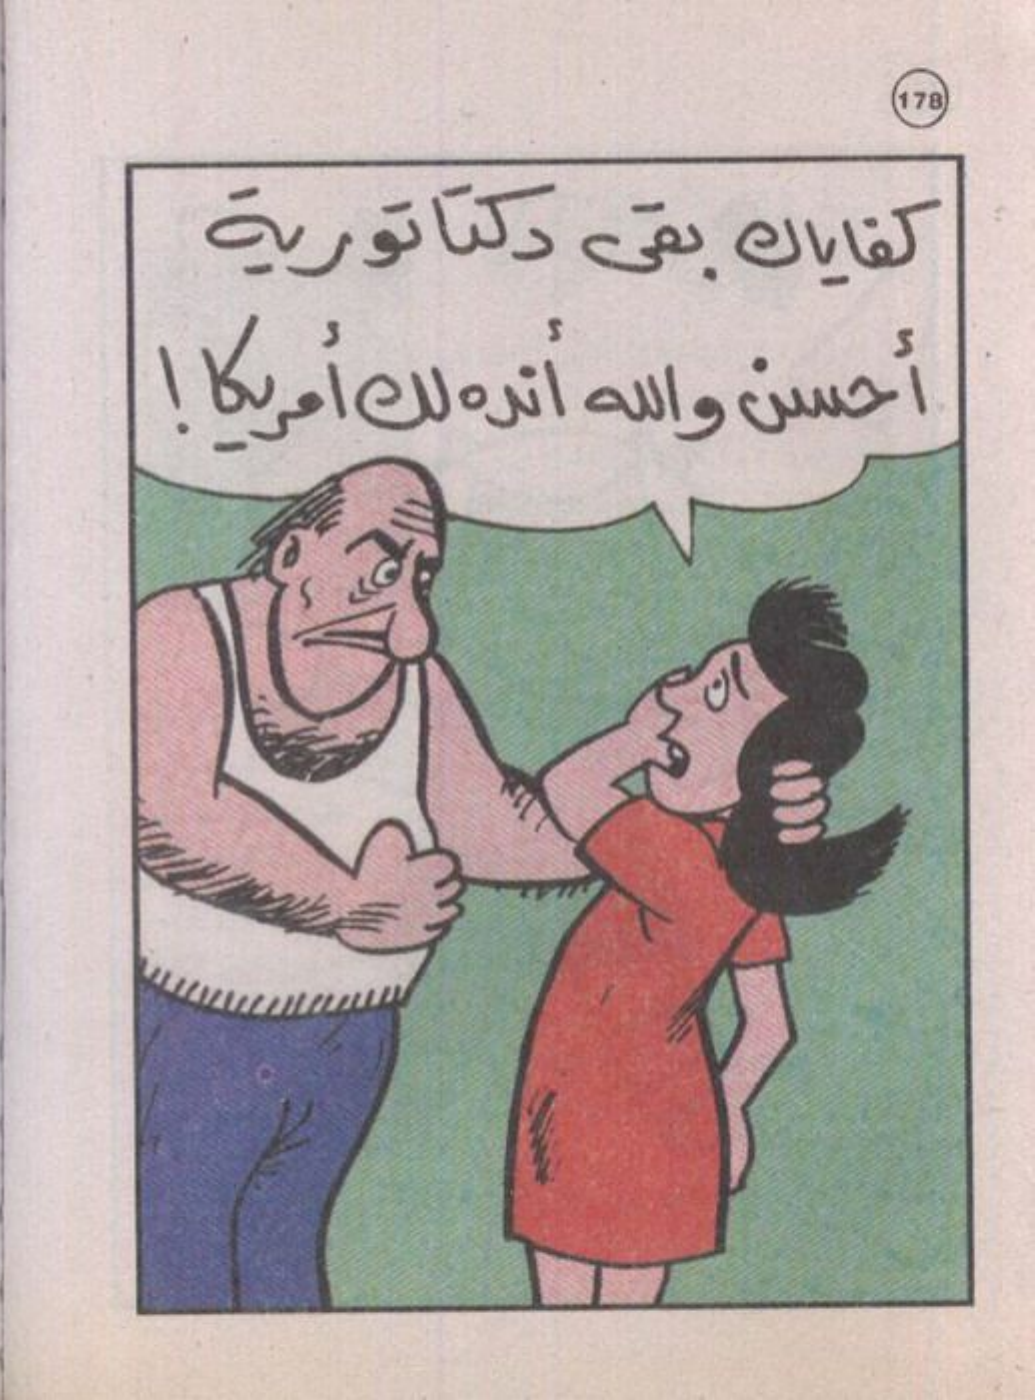 178
كفاياك بقى دكتاتورية
أحسن والله أنده لك أمريكا!